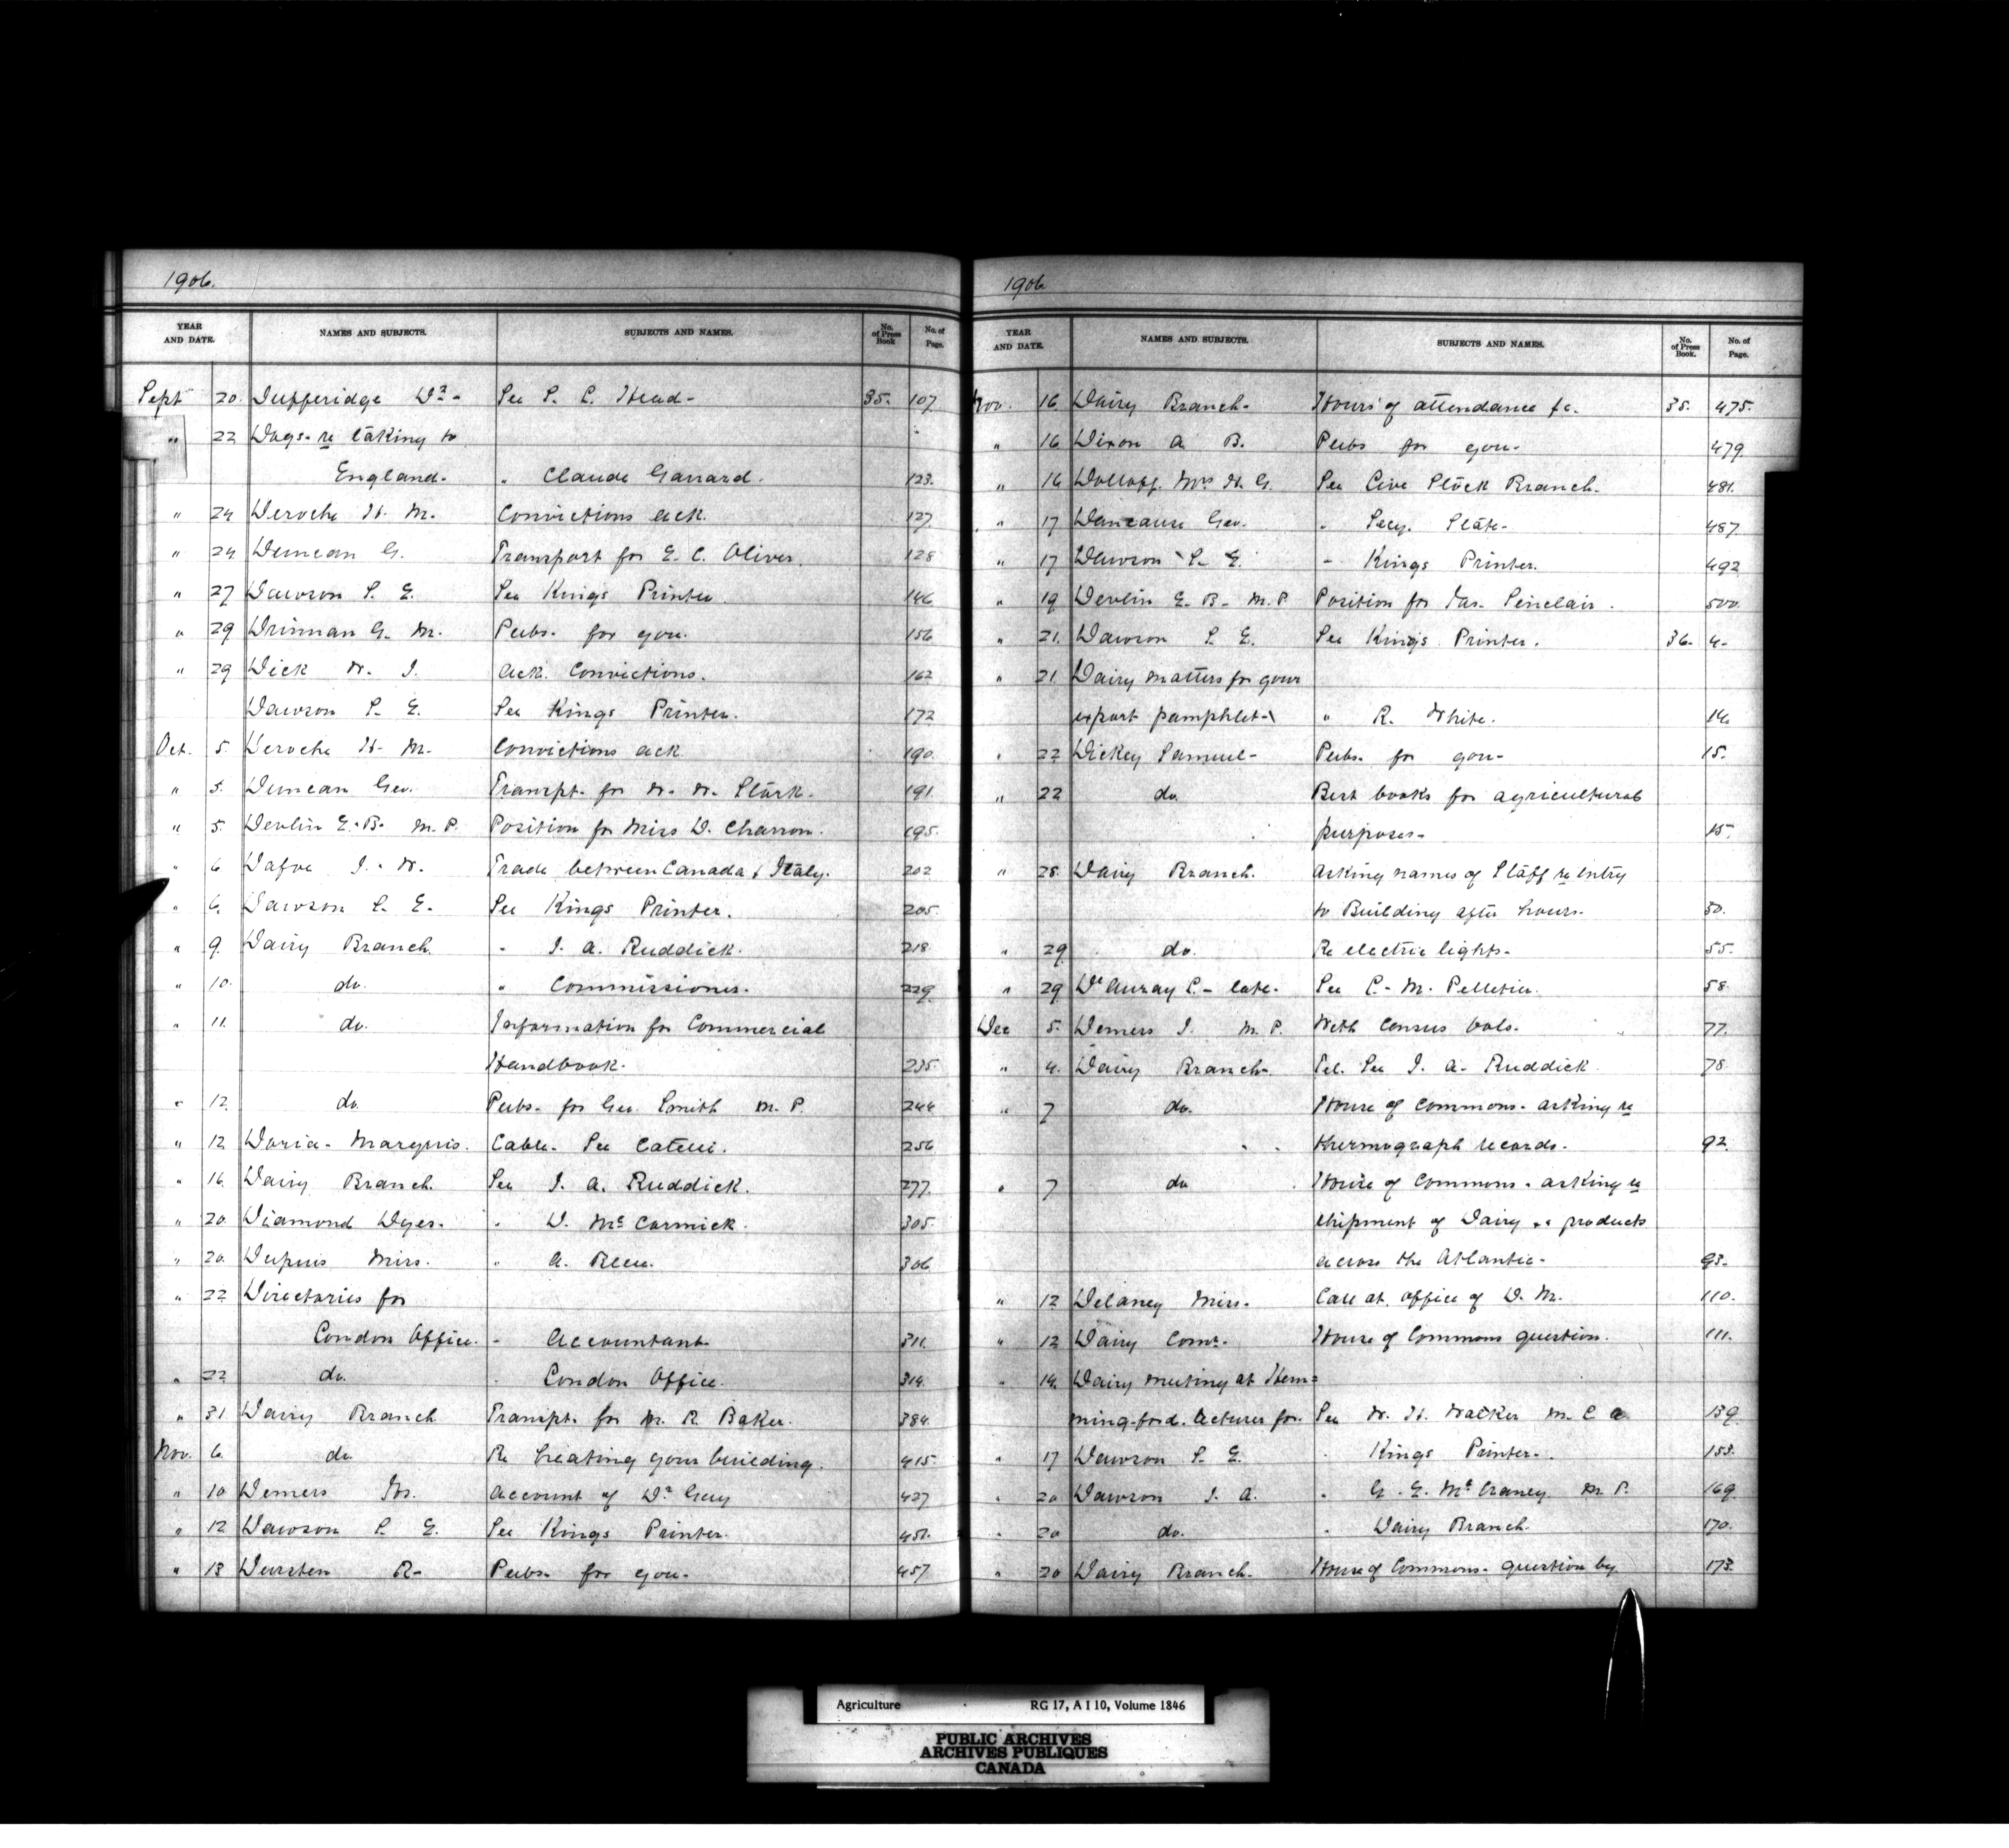 1906.
YEAR AND DATE. NAMES AND SUBJECTS. SUBJECTS AND NAMES. No. of Press Book No. of Page.
Sept 20. Dufferidge Dr - See S. C. Head - 35. 107
" 22 Dogs - re taking to
England - " Claude Garrard. 123.
" 24 Deroche H. M. Convictions ack. 127
" 24 Duncan G. Transport for E. C. Oliver. 128
" 27 Dawson S. E. See Kings Printer. 146
" 29 Drinnan G. M. Pubs. for gou. 156
" 29 Dick W. J. Ack. Convictions. 162
Dawson S. E. See Kings Printer. 172
Oct. 5. Deroche H. M. Convictions ack 190.
" 5. Duncan Geo. Transpt. for W. W. Stark. 191.
" 5. Devlin E. B. M. P. Position for Miss D. Charron. 195.
" 6 Dafoe J. W. Trade between Canada & Italy. 202
" 6. Dawson S. E. See Kings Printer. 205.
" 9. Dairy Branch. " J. A. Ruddick. 218
" 10. do. " Commissioner. 229.
" 11. do. Information for Commercial
Handbook. 235.
" 12. do. Pubs. for Geo. Smith M. P. 244
" 12 Doria - Marquis. Cable. See Catelli. 256
" 16. Dairy Branch. See J. A. Ruddick. 277.
" 20. Diamond Dyes. " D. McCormick. 305.
" 20. Dupuis Miss. " A. 306
" 22 Directories for
London Office. - Accountant. 311.
" 22 do. London Office. 314.
" 31 Dairy Branch Transpt. for M. R. Baker. 384.
Nov. 6. do. Re heating your building. 415.
" 10 Demers Account of Dr Guy 427
" 12 Dawson S. E. See Kings Printer. 451.
" 13 R - Pubs. for gou. 457
1906
YEAR AND DATE. NAMES AND SUBJECTS. SUBJECTS AND NAMES. No. of Press Book. No. of Page.
Nov. 16 Dairy Branch - Hours of attendance &c. 35. 475.
" 16 Dixon A. B. Pubs for gou - 479
" 16 Dolloff. Mrs H. G. See Live Stock Branch. 481.
" 17 Dancause Geo. " Secy. State - 487
" 17 Dawson S. E. - Kings Printer. 492
" 19 Devlin E. B. M. P. Position for Jas. Sinclair. 500.
" 21. Dawson S. E. See Kings Printer. 36. 4.
" 21. Dairy matters for your
export pamphlet - " R. White. 14.
" 22 Dickey Samuel - Pubs. for gou - 15.
" 22 do. Best books for agricultural
purposes - 15.
" 28. Dairy Branch. Asking names of Staff re entry
to Building after hours. 50.
" 29 do. Re electric lights - 55.
" 29 D'Auray C. - late. See C. M. Pelletier. 58.
Dec 5. Demers J. M. P. With Census vols. 77.
" 4. Dairy Branch. Tel. See J. A. Ruddick 78.
" 7 do. House of Commons - asking re
thermograph records. 92.
" 7 do House of Commons - asking re
shipment of Dairy products
across the Atlantic - 93.
" 12 Delaney Miss - Call at office of D. M. 110.
" 12 Dairy Comr. House of Commons question. 111.
" 14. Dairy meeting at Hem=
mingford. lecturer for. See W. H. Walker M. L. A. 139.
" 17 Dawson S. E. " Kings Printer. 153.
" 20 Dawson J. A. " G. E. McCraney M. P. 169.
" 20 do. " Dairy Branch. 170.
" 20 Dairy Branch - House of Commons - question by 173.
Agriculture RG 17, A I 10, Volume 1846
PUBLIC ARCHIVES
ARCHIVES PUBLIQUES
CANADA